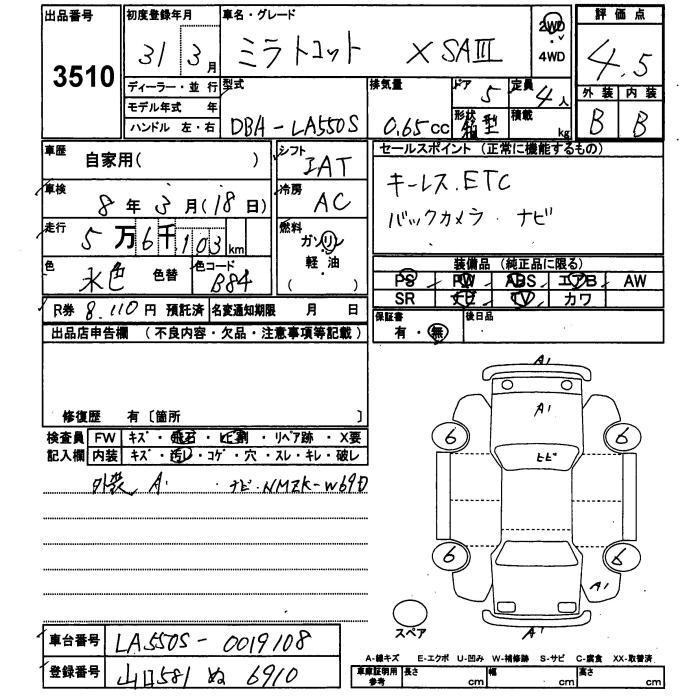 出品番号 3510
初度登録年月 31年 3月
車名・グレード ミラトコット X SAIII
2WD ・ 4WD
評価点 4.5
外装 B 内装 B
ディーラー・並行
モデル年式 年
ハンドル 左・右
型式 DBA-LA550S
排気量 0.65cc
ドア 5
形状 箱型
定員 4人
積載 kg
車歴 自家用( )
シフト IAT
セールスポイント(正常に機能するもの)
キーレス.ETC
バックカメラ. ナビ
車検 8年 3月(18日)
冷房 AC
走行 5万6千103km
燃料 ガソリン 軽・油 ( )
色 水色 色替
色コード B84
装備品(純正品に限る)
PS PW ABS エアB AW
SR ナビ TV カワ
R券 8.110円 預託済 名変通知期限 月 日
保証書 有・無
後日品
出品店申告欄 (不良内容・欠品・注意事項等記載)
修復歴 有〔箇所 〕
検査員記入欄
FW キズ・飛石・ヒビ割・リペア跡・X要
内装 キズ・汚レ・コゲ・穴・スレ・キレ・破レ
外装 A1 ・ナビ・NMZK-W69D
A1
A1
6 6
ヒビ
6 6
A1
A1
スペア
車台番号 LA550S-0019108
登録番号 山口581 ぬ 6910
A-線キズ E-エクボ U-凹み W-補修跡 S-サビ C-腐食 XX-取替済
車庫証明用参考 長さ cm 幅 cm 高さ cm